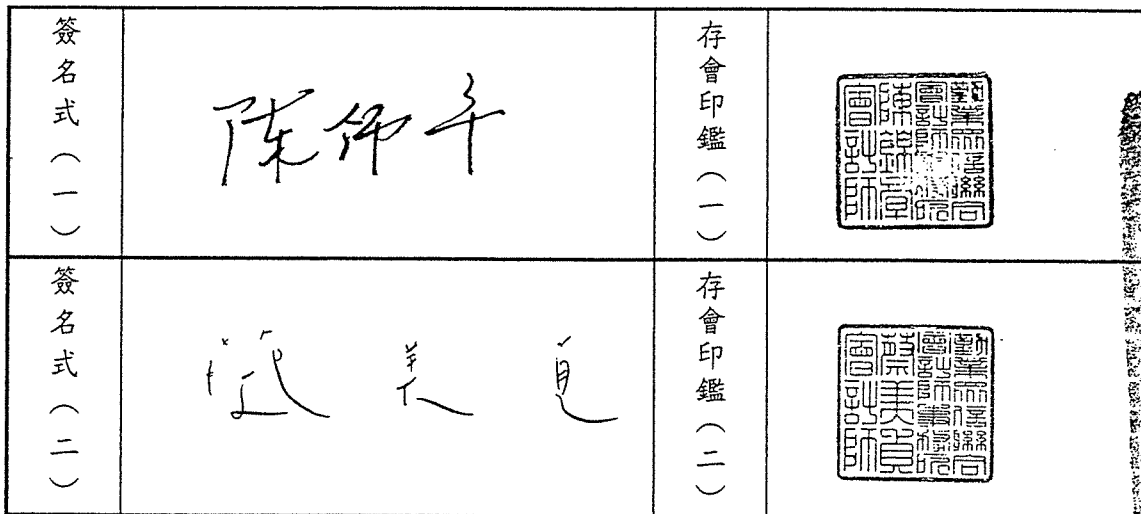 簽名式（一）
陳錦章
存會印鑑（一）
勤業眾信聯合
會計師事務所
陳錦章
會計師
簽名式（二）
蔡美貞
存會印鑑（二）
勤業眾信聯合
會計師事務所
蔡美貞
會計師